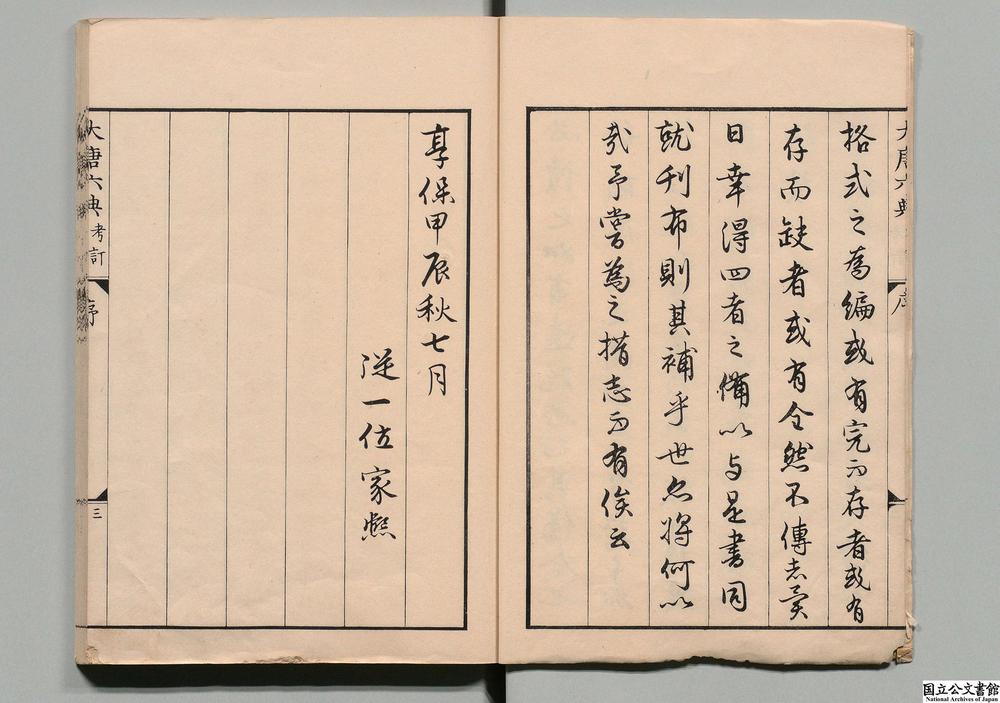 格式之為編或有完而存者或有
存而缺者或有全然不傳者異
日幸得四者之備以与是書同
就刊布則其補乎世亦將何以
哉予嘗為之措志而有俟云
大唐六典
享保甲辰秋七月
從一位家熈
大唐六典考訂
序
三
国立公文書館
National Archives of Japan